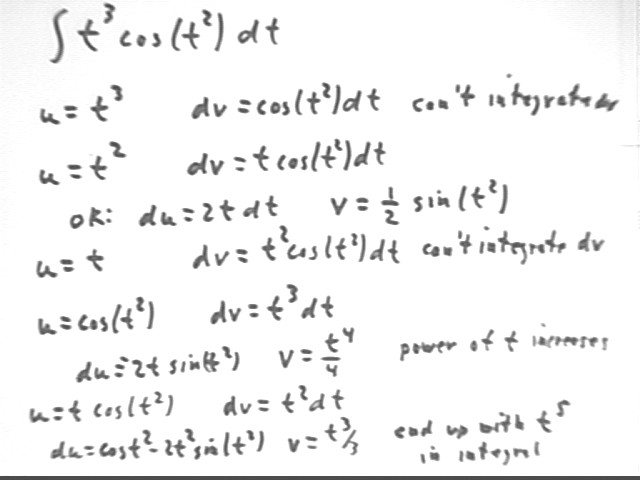 ∫ t³ cos(t²) dt
u = t³ dv = cos(t²)dt can't integrate dv
u = t² dv = t cos(t²)dt
OK: du = 2t dt v = 1/2 sin(t²)
u = t dv = t² cos(t²)dt can't integrate dv
u = cos(t²) dv = t³ dt
du = 2t sin(t²) v = t⁴/4 power of t increases
u = t cos(t²) dv = t² dt
du = cos t² - 2t² sin(t²) v = t³/3 end up with t⁵
in integral